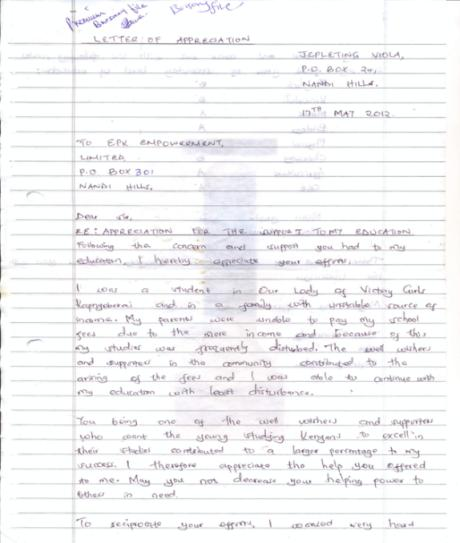 Premium
Bursary file
Bursary file
LETTER OF APPRECIATION
JEPLETING VIOLA,
P.O. BOX 20,
NANDI HILLS.
17TH MAY 2012.
TO EPK EMPOWERMENT,
LIMITED
P.O BOX 301
NANDI HILLS.
Dear Sir,
RE: APPRECIATION FOR THE SUPPORT TO MY EDUCATION.
Following the concern and support you had to my
education, I hereby appreciate your efforts.
I was a student in Our Lady of Victory Girls
Kapnyeberai and in a family with unstable source of
income. My parents were unable to pay my school
fees due to the income and because of this
my studies was frequently disturbed. The well wishers
and supporters in the community contributed to the
of the fees and I was able to continue with
my education with least disturbance.
You being one of the well wishers and supporters
who want the young studying Kenyans to excell in
their studies contributed to a larger percentage to my
success. I therefore appreciate the help you offered
to me. May you not decrease your helping power to
others in need.
To reciprocate your efforts, I worked very hard